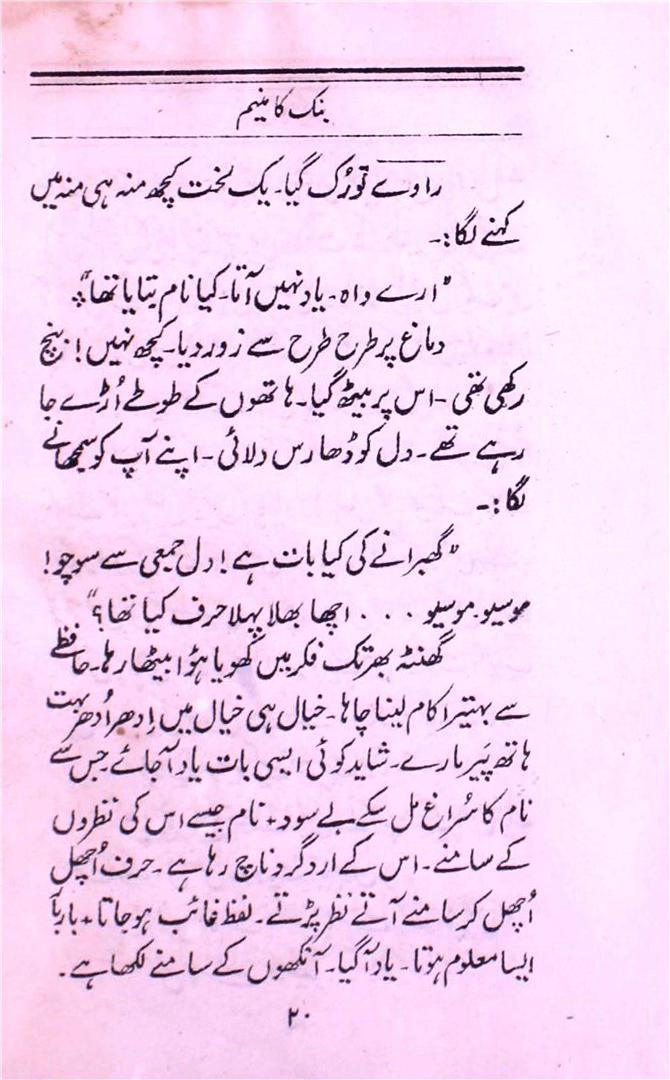 بنک کا منیم
راوے تو رُک گیا۔ یک لخت کچھ منہ ہی منہ میں
کہنے لگا :۔
"ارے واہ۔ یاد نہیں آتا۔ کیا نام بتایا تھا"؟
دماغ پر طرح طرح سے زور دیا۔ کچھ نہیں! بنچ
رکھی تھی۔ اس پر بیٹھ گیا۔ ہاتھوں کے طوطے اُڑے جا
رہے تھے۔ دل کو ڈھارس دلائی۔ اپنے آپ کو سمجھانے
لگا :۔
"گھبرانے کی کیا بات ہے! دل جمعی سے سوچو!
موسیو۔ موسیو . . . اچھا بھلا پہلا حرف کیا تھا؟"
گھنٹہ بھر تک فکر میں کھویا ہؤا بیٹھا رہا۔ حافظے
سے بہتیرا کام لینا چاہا۔ خیال ہی خیال میں اِدھر اُدھر بہت
ہاتھ پَیر مارے۔ شاید کوئی ایسی بات یاد آجائے جس سے
نام کا سُراغ مل سکے بے سود۔ نام جیسے اس کی نظروں
کے سامنے۔ اس کے ارد گرد ناچ رہا ہے۔ حرف اُچھل
اُچھل کر سامنے آتے نظر پڑتے۔ لفظ غائب ہو جاتا۔ بار بار
ایسا معلوم ہوتا۔ یاد آگیا۔ آنکھوں کے سامنے لکھا ہے۔
۲۰